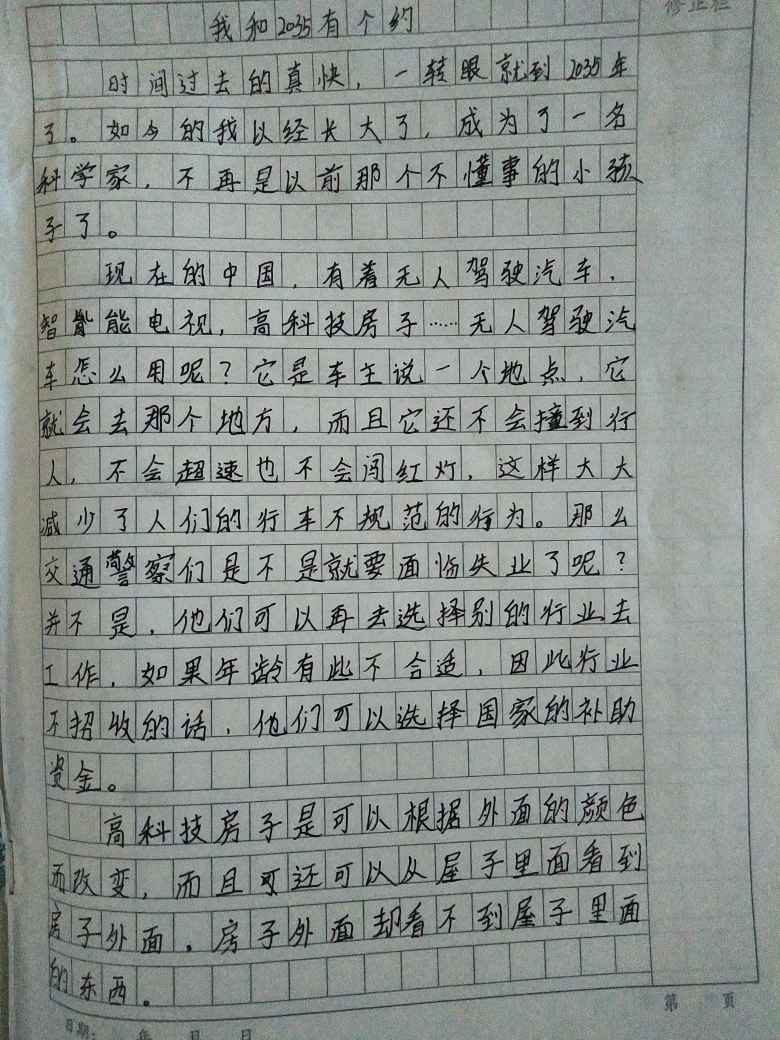 修正栏
我和2035有个约
时间过去的真快，一转眼就到2035年
了。如今的我以经长大了，成为了一名
科学家，不再是以前那个不懂事的小孩
子了。
现在的中国，有着无人驾驶汽车、
智能能电视，高科技房子……无人驾驶汽
车怎么用呢？它是车主说一个地点，它
就会去那个地方，而且它还不会撞到行
人，不会超速也不会闯红灯，这样大大
减少了人们的行车不规范的行为。那么
交通警察们是不是就要面临失业了呢？
并不是，他们可以再去选择别的行业去
工作，如果年龄有些不合适，因此行业
不招收的话，他们可以选择国家的补助
资金。
高科技房子是可以根据外面的颜色
而改变，而且可还可以从屋子里面看到
房子外面，房子外面却看不到屋子里面
的东西。
第 页
日期： 年 月 日